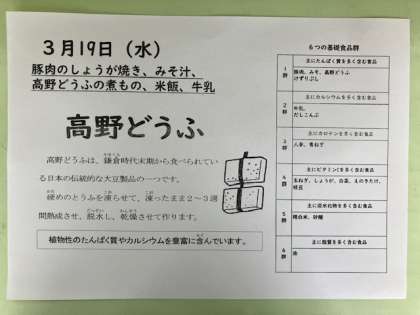 3月19日（水）
豚肉のしょうが焼き、みそ汁、
高野どうふの煮もの、米飯、牛乳
高野どうふ
高野どうふは、鎌倉時代末期から食べられてい
る日本の伝統的な大豆製品の一つです。
硬めのとうふを凍らせて、凍ったまま2～3週
間熟成させ、脱水し、乾燥させて作ります。
植物性のたんぱく質やカルシウムを豊富に含んでいます。
６つの基礎食品群
1群
主にたんぱく質を多く含む食品
豚肉、みそ、高野どうふ
けずりぶし
2群
主にカルシウムを多く含む食品
牛乳、
だしこんぶ
3群
主にカロテンを多く含む食品
人参、青ねぎ
4群
主にビタミンCを多く含む食品
玉ねぎ、しょうが、白菜、えのきたけ、
枝豆
5群
主に炭水化物を多く含む食品
精白米、砂糖
6群
主に脂質を多く含む食品
油